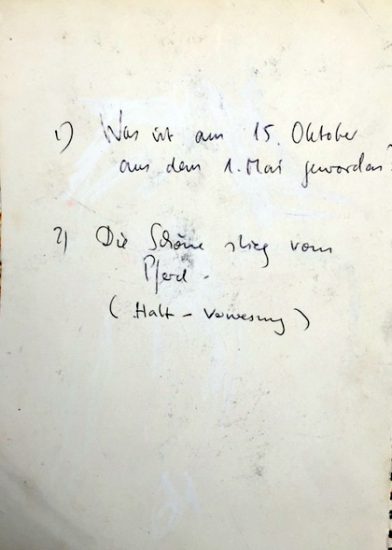 1) Was ist am 15. Oktober
aus dem 1. Mai geworden?
2) Die Schöne stieg vom
Pferd.
(Halt - Verwesung)